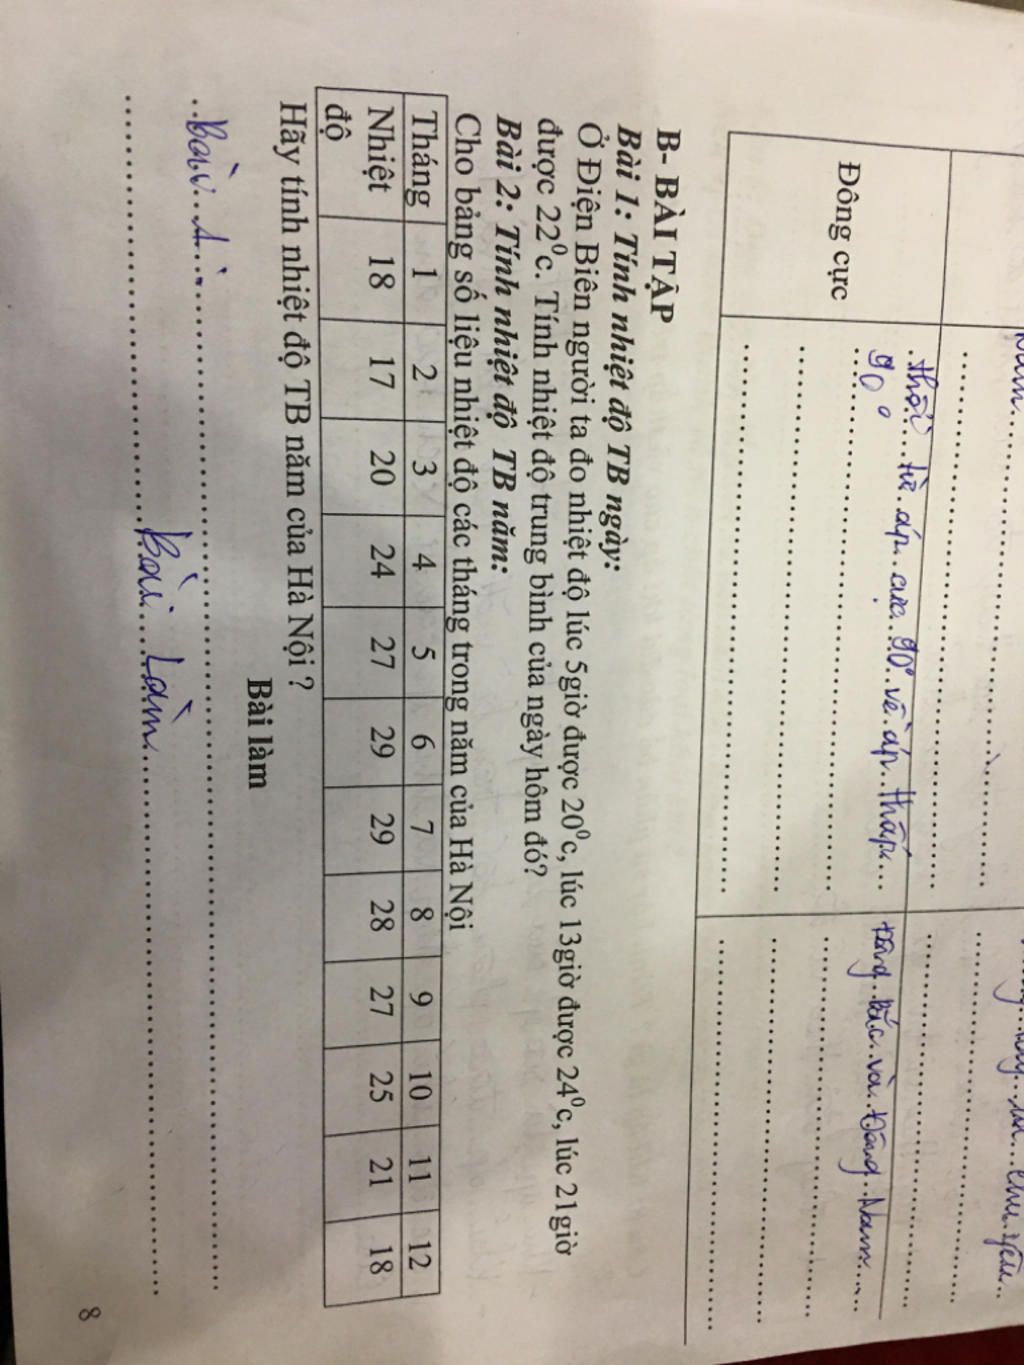 Đông cực
thổi từ áp cực 90° về áp thấp
90°
Đông Bắc và Đông Nam
B- BÀI TẬP
Bài 1: Tính nhiệt độ TB ngày:
Ở Điện Biên người ta đo nhiệt độ lúc 5giờ được 20⁰c, lúc 13giờ được 24⁰c, lúc 21giờ
được 22⁰c. Tính nhiệt độ trung bình của ngày hôm đó?
Bài 2: Tính nhiệt độ TB năm:
Cho bảng số liệu nhiệt độ các tháng trong năm của Hà Nội
Tháng 1 2 3 4 5 6 7 8 9 10 11 12
Nhiệt độ 18 17 20 24 27 29 29 28 27 25 21 18
Hãy tính nhiệt độ TB năm của Hà Nội ?
Bài làm
Bài 1:
Bài làm
8